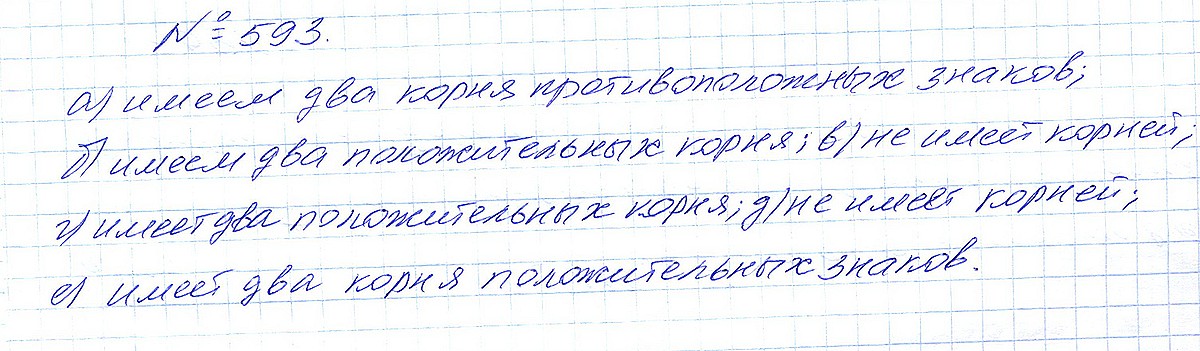 № 593.
а) имеем два корня противоположных знаков;
б) имеем два положительных корня; в) не имеет корней;
г) имеет два положительных корня; д) не имеет корней;
е) имеет два корня положительных знаков.